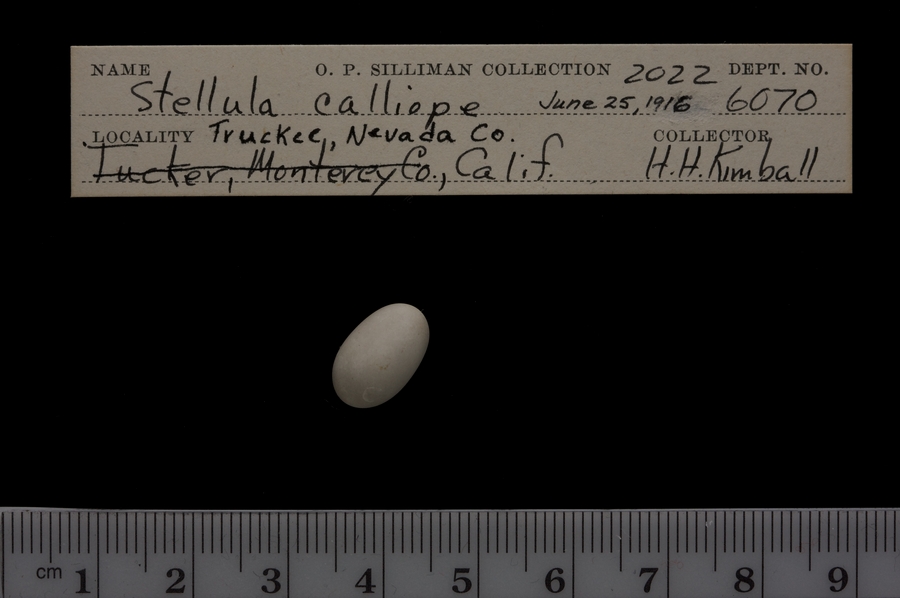 NAME O. P. SILLIMAN COLLECTION 2022 DEPT. NO.
Stellula calliope June 25, 1916 6070
LOCALITY Truckee, Nevada Co. COLLECTOR
Tucker, Monterey Co., Calif. H.H. Kimball
cm 1 2 3 4 5 6 7 8 9